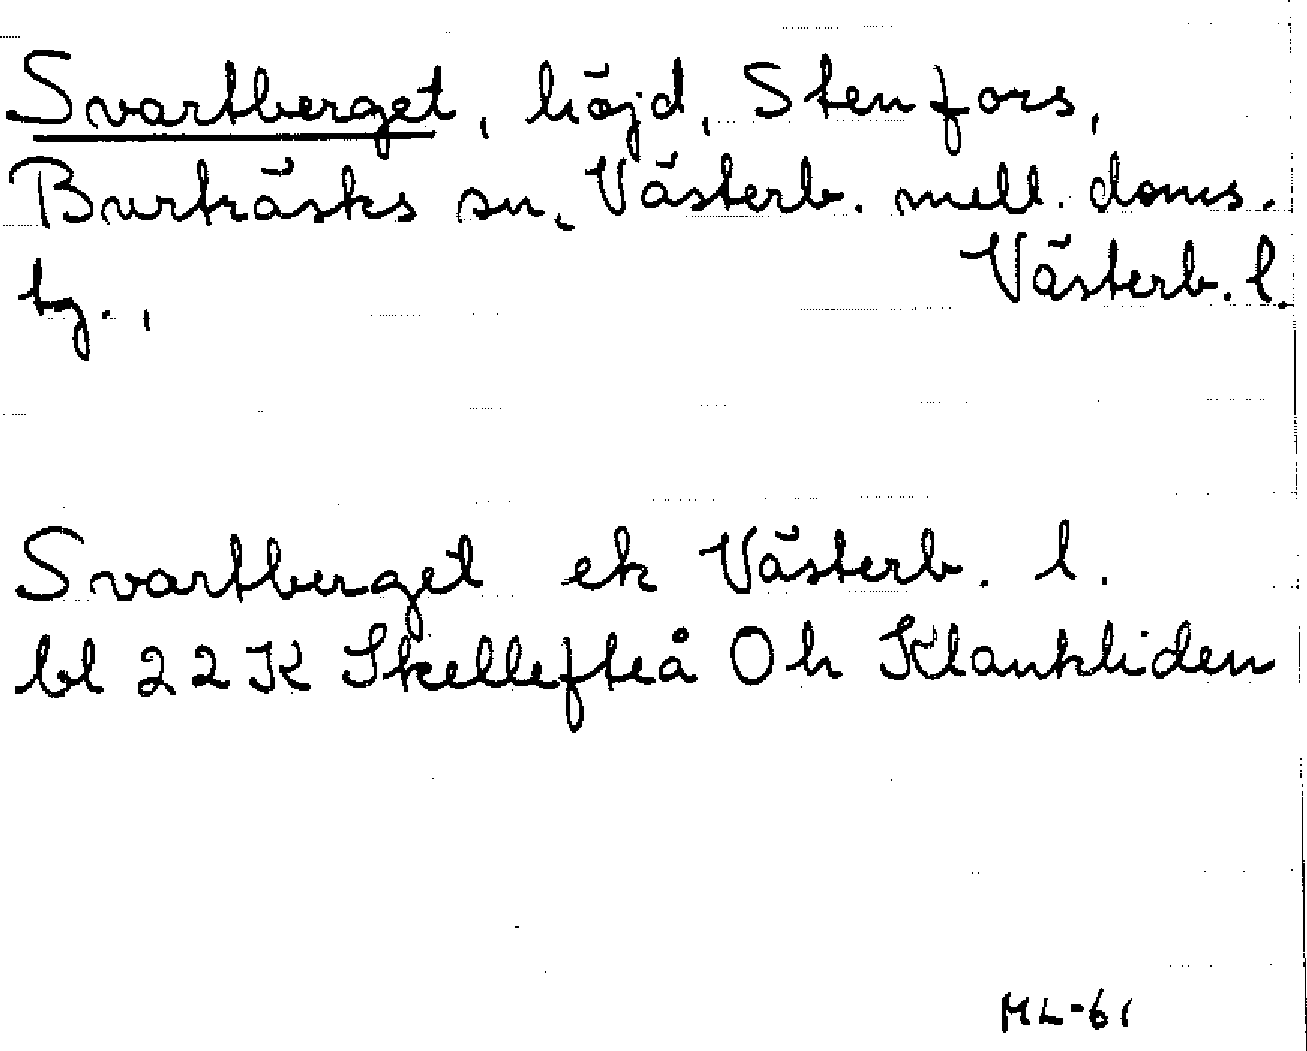 Svartberget, höjd, Stenfors,
Burträsks sn, Västerb. mell. doms.
tg., Västerb. l.
Svartberget ek Västerb. l.
bl 22K Skellefteå Oh Klankliden
ML-61